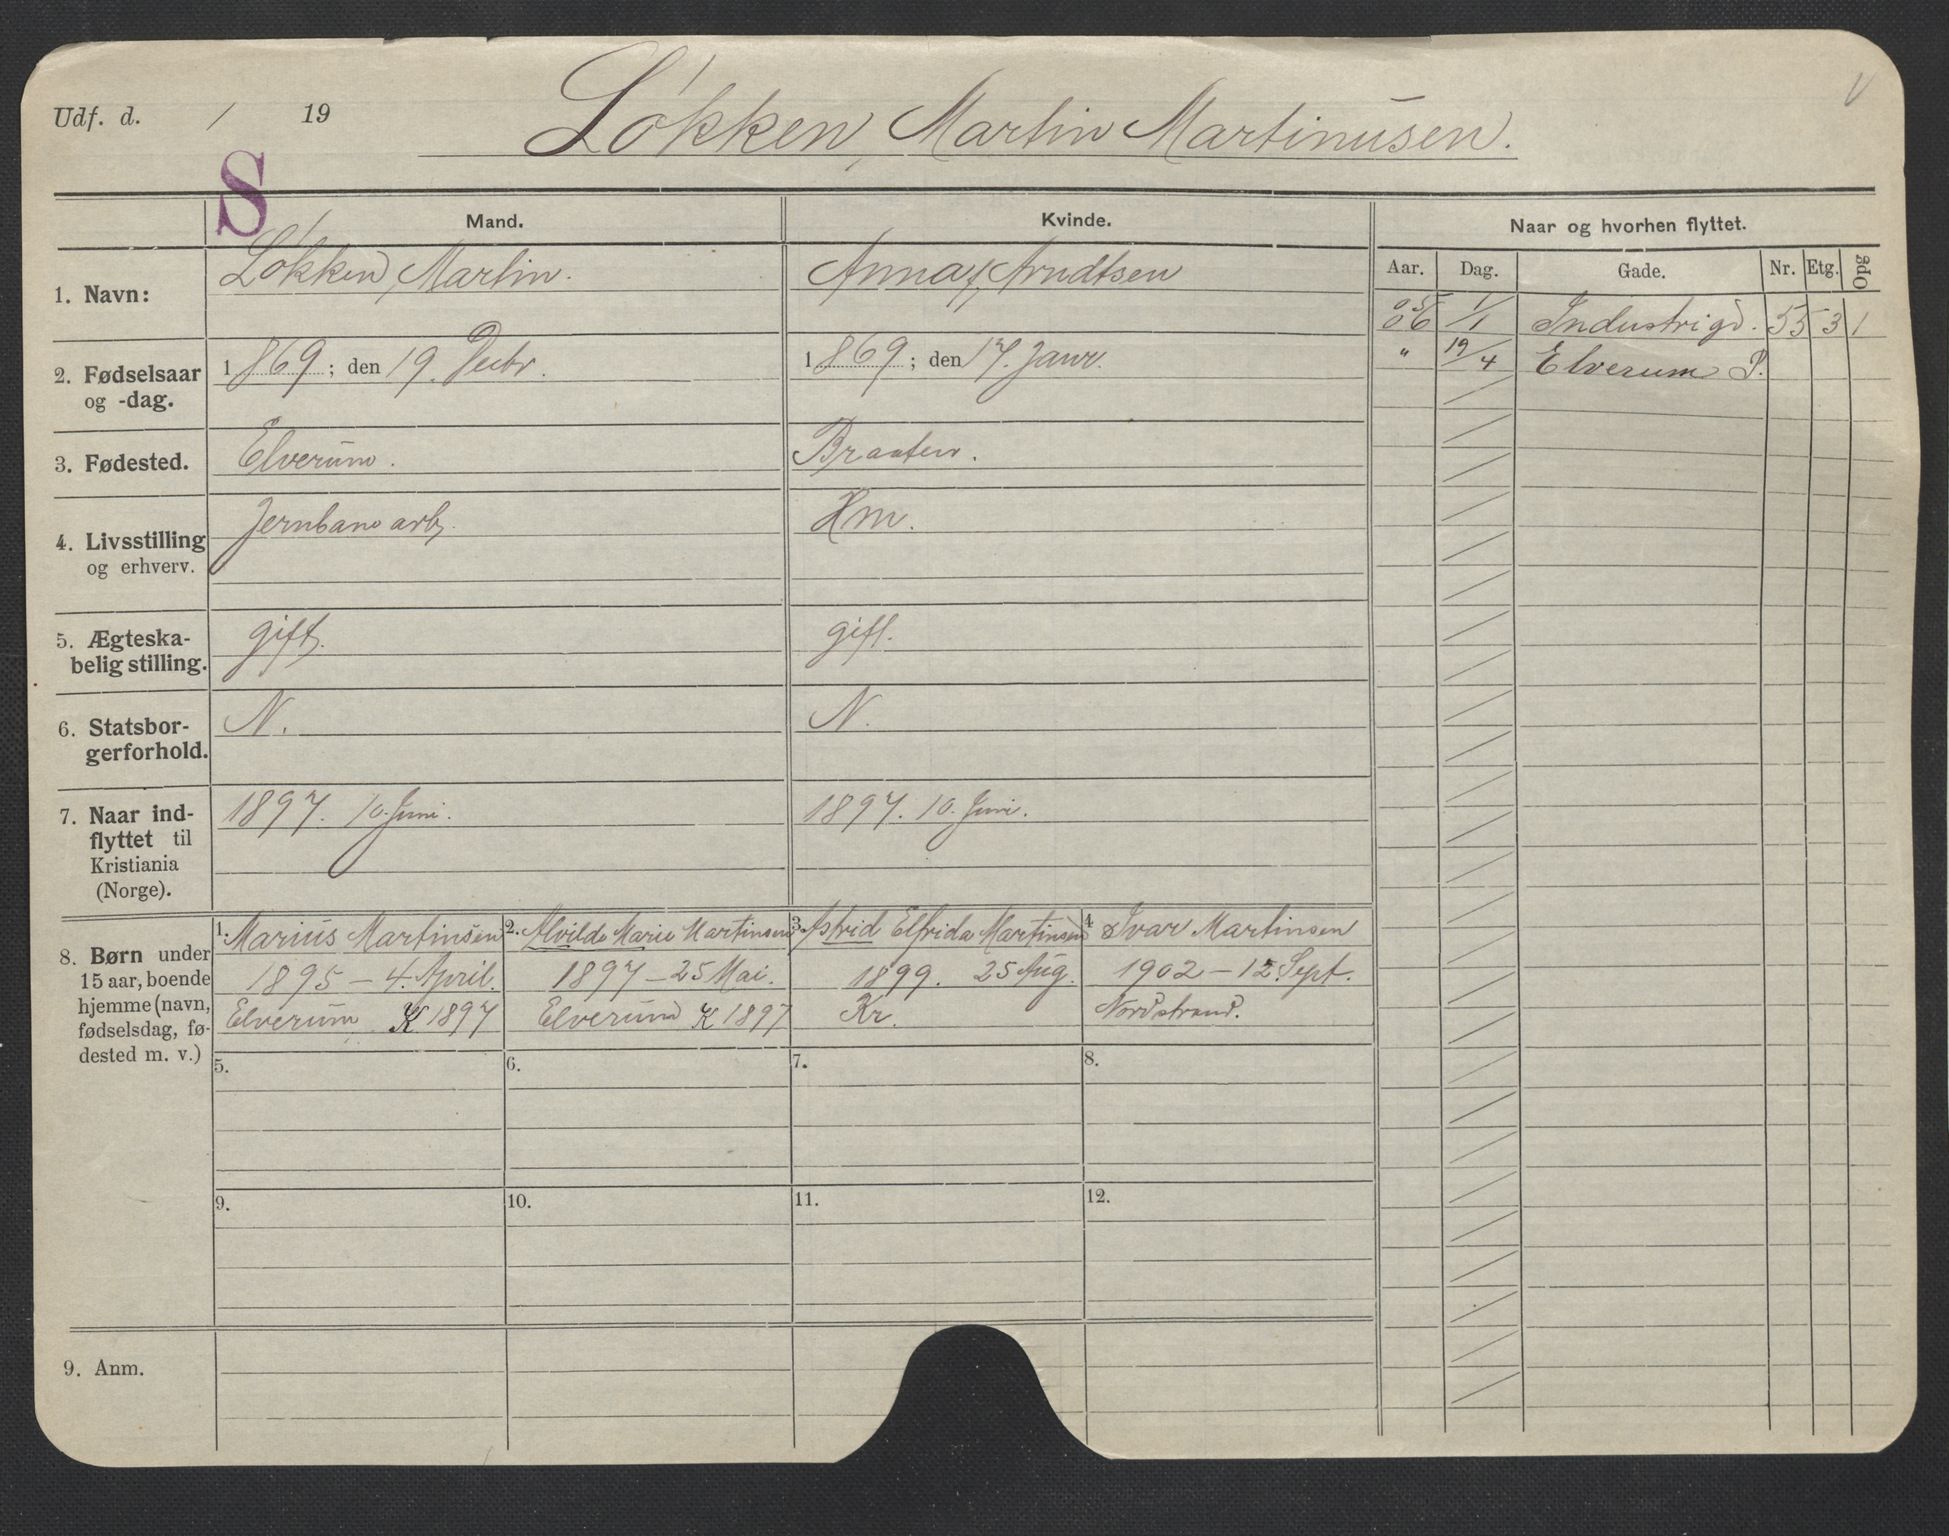 Udf. d. / 19
Løkken, Martin Martinusen.
S
Mand.
Kvinde.
Naar og hvorhen flyttet.
Aar. Dag. Gade. Nr. Etg. Opg
1. Navn:
Løkken, Martin.
Anna f. Arndtsen
06 1/1 Industrigd. 55 3 1
" 19/4 Elverum P.
2. Fødselsaar
og -dag.
1869; den 19. Decbr.
1869; den 17. Janr.
3. Fødested.
Elverum.
Braaten.
4. Livsstilling
og erhverv.
Jernbanearb.
Hm.
5. Ægteska-
belig stilling.
gift.
gift.
6. Statsbor-
gerforhold.
N.
N.
7. Naar ind-
flyttet til
Kristiania
(Norge).
1897. 10. Juni.
1897. 10. Juni.
8. Børn under
15 aar, boende
hjemme (navn,
fødselsdag, fø-
dested m. v.)
1. Marius Martinsen
1895 - 4. April.
Elverum K 1897
2. Alvilde Marie Martinsen
1897 - 25 Mai.
Elverum K 1897
3. Astrid Elfrida Martinsen
1899. 25 Aug.
Kr.
4 Ivar Martinsen
1902 - 12. Sept.
Nordstrand.
5.
6.
7.
8.
9.
10.
11.
12.
9. Anm.